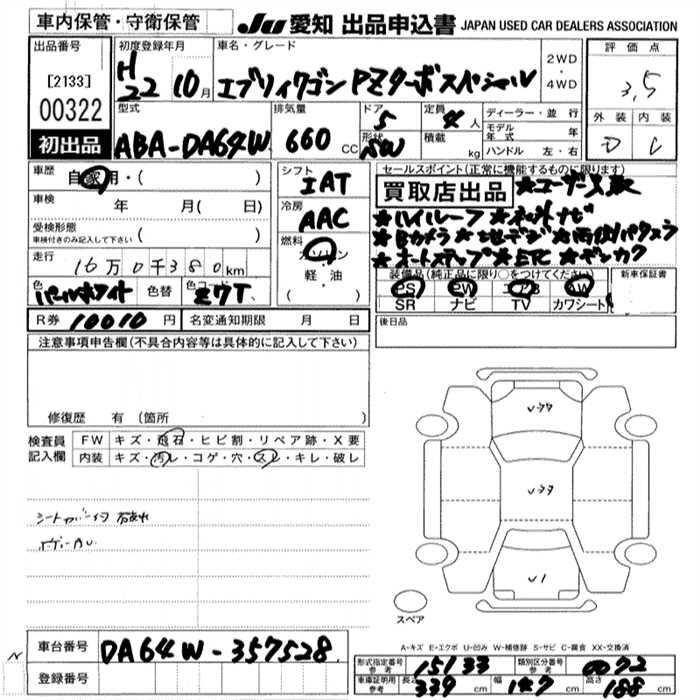 車内保管・守衛保管
JU 愛知 出品申込書 JAPAN USED CAR DEALERS ASSOCIATION
出品番号
[2133]
00322
初出品
初度登録年月
H 22 10月
車名・グレード
エブリィワゴン PZターボスペシャル
2WD
・
4WD
評価点
3,5
外装 内装
D C
型式
ABA-DA64W
排気量
660 CC
ドア
5
形状
定員
4 人
積載
kg
ディーラー・並行
モデル年式 年
ハンドル 左・右
車歴
自家用・( )
車検
年 月( 日)
受検形態
車検付きのみ記入して下さい
( )
走行
16万0千380km
色
パールホワイト
色替
色コード
Z7T
シフト
IAT
冷房
AAC
燃料
ガソリン
軽・油
( )
セールスポイント(正常に機能するものに限ります)
買取店出品 ★ユーザー買取
★ハイルーフ ★社外ナビ
★Bカメラ ★地デジ ★両側パワスラ
★オートステップ ★ETC ★ゲンカク
装備品(純正品に限り○をつけてください)
PS PW エアB AW
SR ナビ TV カワシート
新車保証書
後日品
R券 10010 円
名変通知期限 月 日
注意事項申告欄(不具合内容等は具体的に記入して下さい)
修復歴 有(箇所 )
検査員記入欄
FW キズ・飛石・ヒビ割・リペア跡・X要
内装 キズ・汚レ・コゲ・穴・スレ・キレ・破レ
U1
スペア
A-キズ E-エクボ U-凹み W-補修跡 S-サビ C-腐食 XX-交換済
車台番号 DA64W-357528
登録番号
形式指定番号 参考 15133
類別区分番号 参考 0072
車庫証明用 参考 長さ 339 cm 幅 147 cm 高さ 188 cm